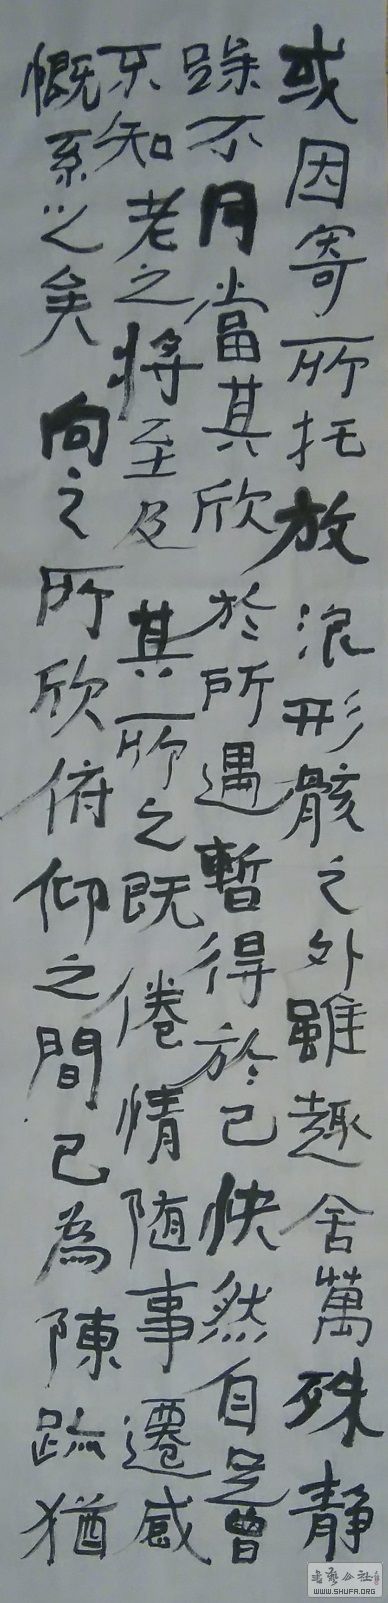 或因寄所托放浪形骸之外雖趣舍萬殊静
躁不同當其欣於所遇暫得於己快然自足曾
不知老之將至及其所之既倦情随事遷感
慨系之矣向之所欣俯仰之間已為陳跡猶
WWW.SHUFA.ORG